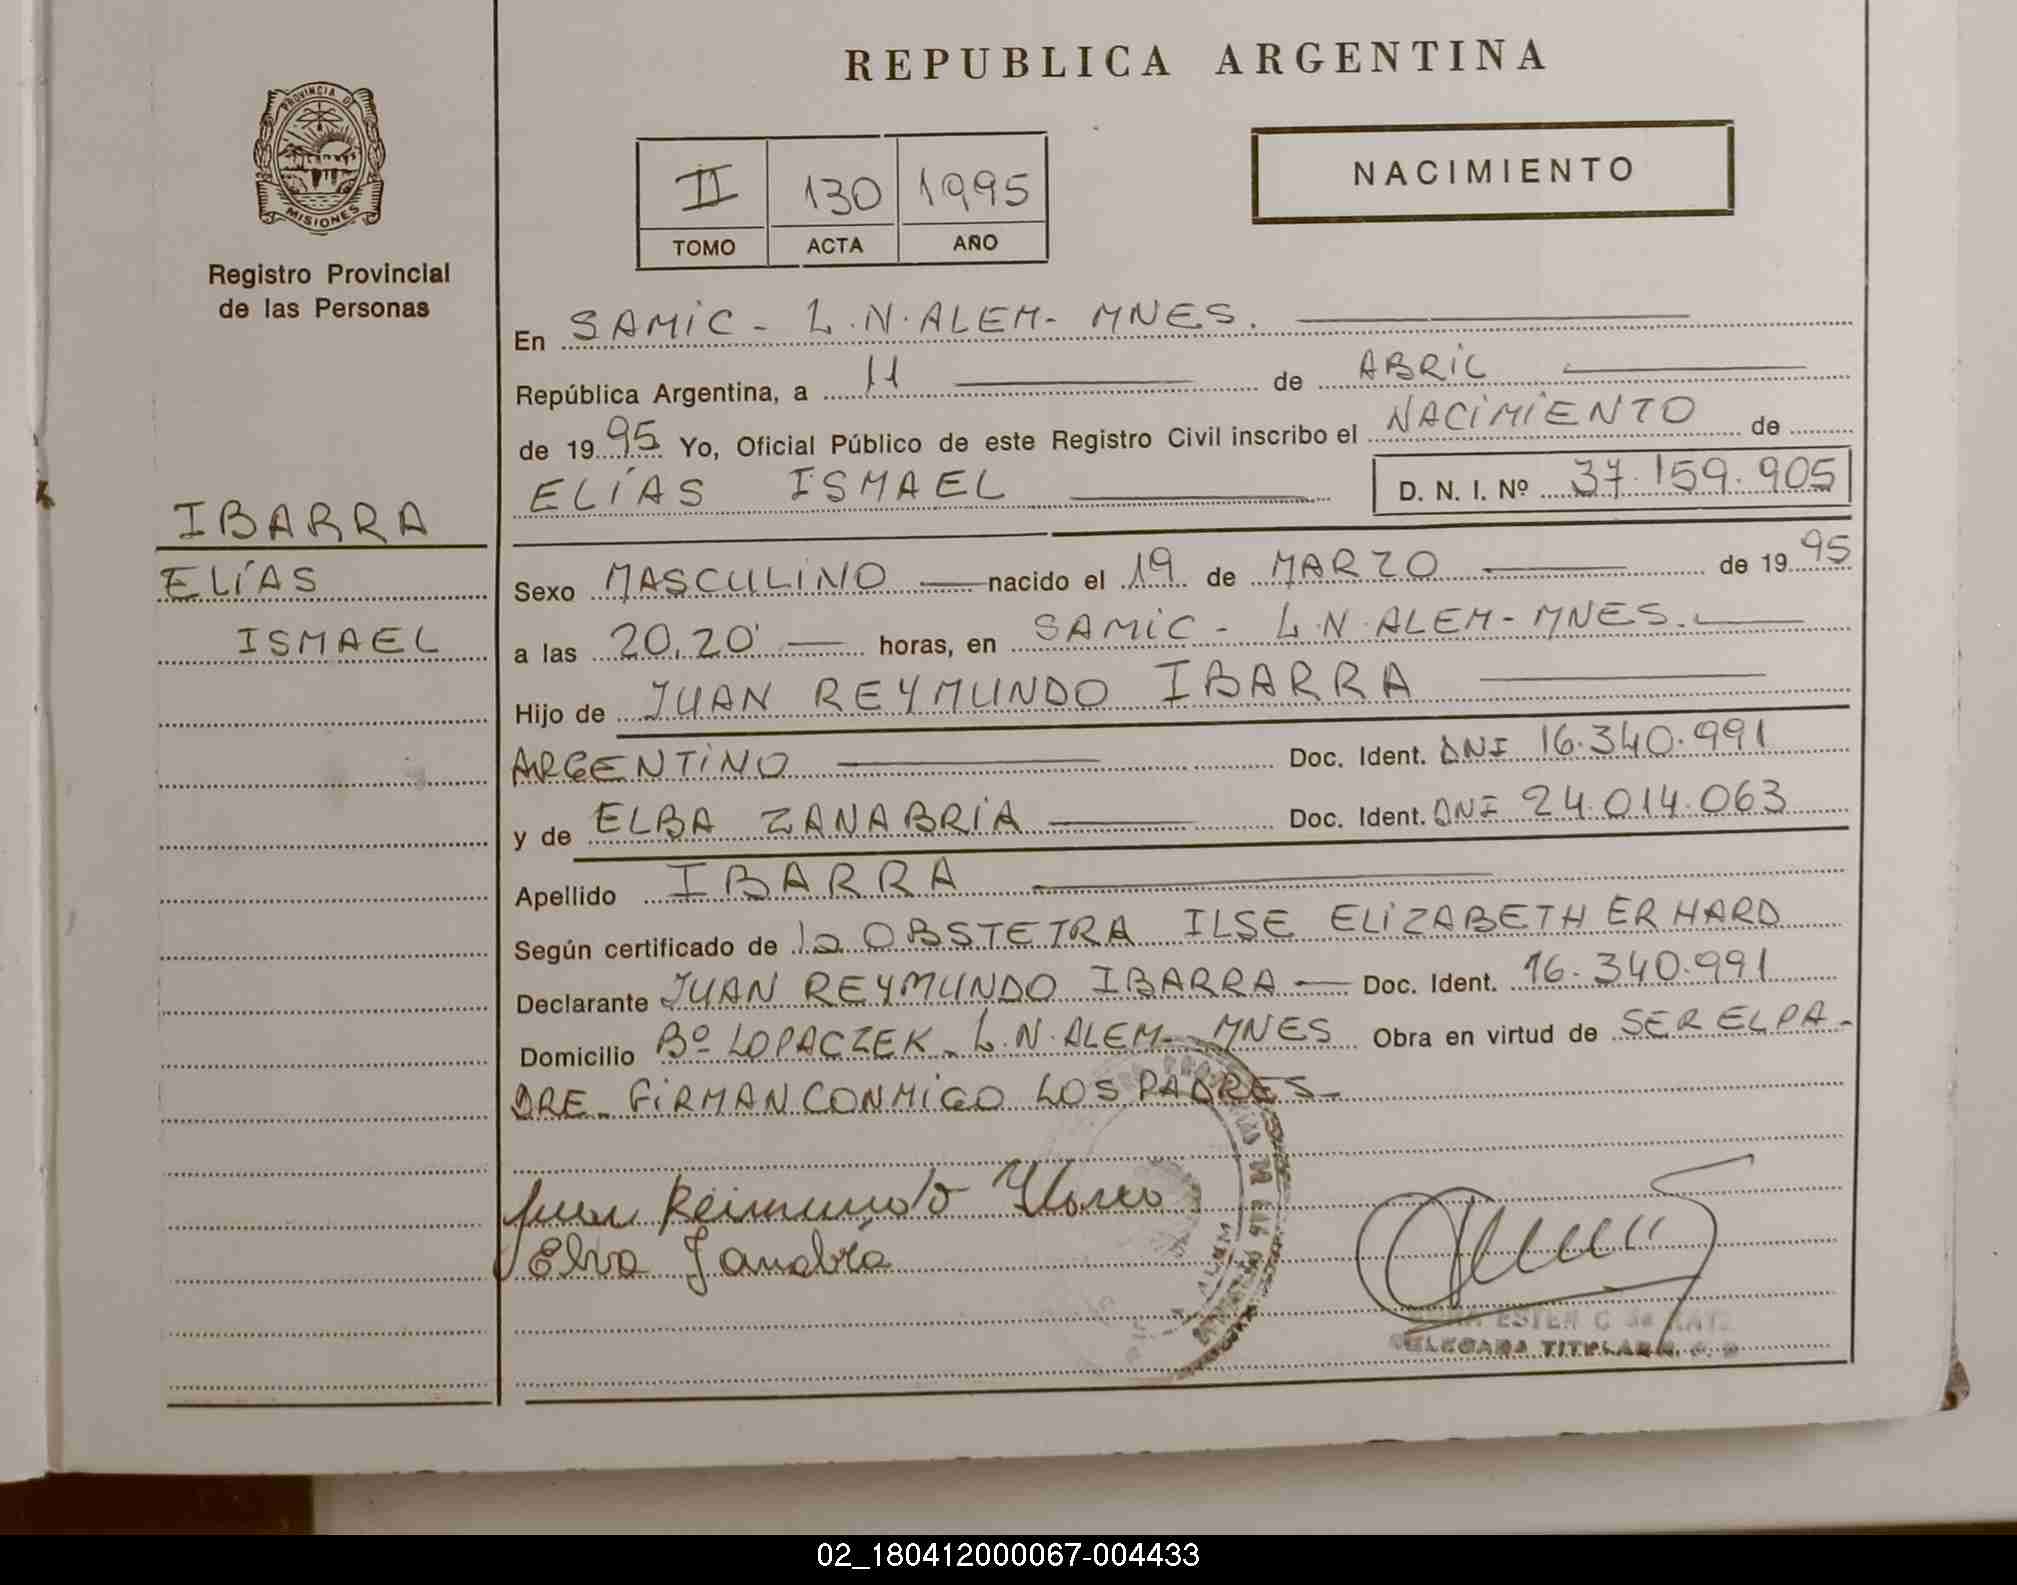 REPUBLICA ARGENTINA
PROVINCIA D
MISIONES
Registro Provincial
de las Personas
NACIMIENTO
II 130 1995
TOMO ACTA AÑO
En SAMIC - L.N.ALEM- MNES.
República Argentina, a 11 de ABRIL
de 1995 Yo, Oficial Público de este Registro Civil inscribo el NACIMIENTO de
ELÍAS ISMAEL D. N. I. Nº 37.159.905
IBARRA
ELÍAS
ISMAEL
Sexo MASCULINO nacido el 19 de MARZO de 1995
a las 20,20' horas, en SAMIC - L.N.ALEM-MNES.
Hijo de JUAN REYMUNDO IBARRA
ARGENTINO Doc. Ident. DNI 16.340.991
y de ELBA ZANABRIA Doc. Ident. DNI 24.014.063
Apellido IBARRA
Según certificado de la OBSTETRA ILSE ELIZABETH ERHARD
Declarante JUAN REYMUNDO IBARRA Doc. Ident. 16.340.991
Domicilio Bº LOPACZEK - L.N.ALEM- MNES Obra en virtud de SER EL PA-
DRE - FIRMAN CONMIGO LOS PADRES-
Juan Reimundo Ibarra
Elva Zanabria
ESTER C de KATZ
DELEGADA TITULAR
02_180412000067-004433